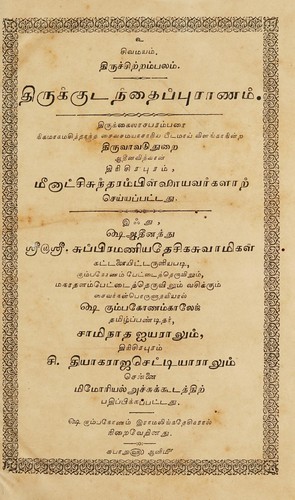 உ
சிவமயம்.
திருச்சிற்றம்பலம்.
திருக்குடந்தைப்புராணம்.
திருக்கைலாசபரம்பரை
விளங்காநின்ற
திருவாவடுதுறை
ஆதீனவித்வான்
திரிசிரபுரம்,
மீனாட்சிசுந்தரம்பிள்ளையவர்களாற்
செய்யப்பட்டது.
இஃது,
ஷெ ஆதீனத்து
ஸ்ரீலஸ்ரீ, சுப்பிரமணியதேசிகசுவாமிகள்
கட்டளையிட்டருளியபடி,
கும்பகோணம் பேட்டைத்தெருவிலும்,
மகாதனம்பேட்டைத்தெருவிலும் வசிக்கும்
சைவர்கள்பொருளுதவியால்
ஷெ கும்பகோணம்காலேஜ்
தமிழ்ப்பண்டிதர்,
சாமிநாத ஐயராலும்,
திரிசிரபுரம்
சி. தியாகராஜசெட்டியாராலும்
சென்னை
மிமோரியல்அச்சுக்கூடத்திற்
பதிப்பிக்கப்பட்டது.
ஷெ கும்பகோணம் இராமலிங்கதேசிகரால்
நிறைவேறினது.
ஆனி